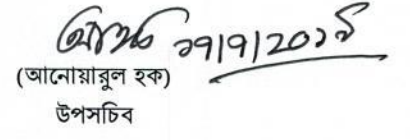 ১৭/৭/২০১৮
(আনোয়ারুল হক)
উপসচিব